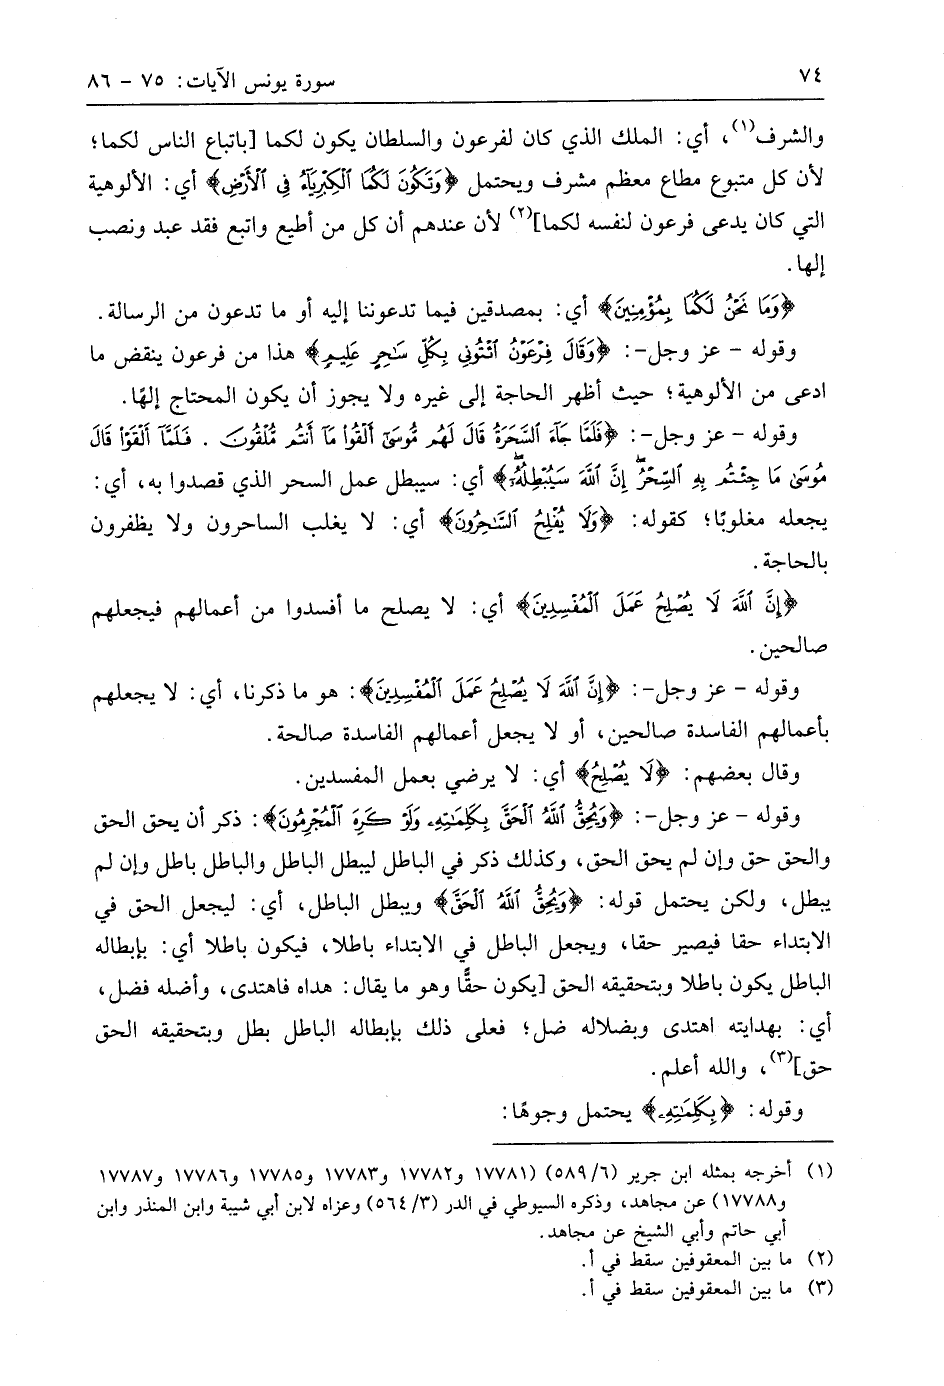 ٧٤
سورة يونس الآيات: ٧٥ – ٨٦
والشرف(١)، أي: الملك الذي كان لفرعون والسلطان يكون لكما [باتباع الناس لكما؛
لأن كل متبوع مطاع معظم مشرف ويحتمل ﴿وَتَكُونَ لَكُمَا ٱلْكِبْرِيَآءُ فِي ٱلْأَرْضِ﴾ أي: الألوهية
التي كان يدعى فرعون لنفسه لكما](٢) لأن عندهم أن كل من أطيع واتبع فقد عبد ونصب
إلها.
﴿وَمَا نَحْنُ لَكُمَا بِمُؤْمِنِينَ﴾ أي: بمصدقين فيما تدعوننا إليه أو ما تدعون من الرسالة.
وقوله – عز وجل–: ﴿وَقَالَ فِرْعَوْنُ ٱئْتُونِي بِكُلِّ سَٰحِرٍ عَلِيمٍ﴾ هذا من فرعون ينقض ما
ادعى من الألوهية؛ حيث أظهر الحاجة إلى غيره ولا يجوز أن يكون المحتاج إلهًا.
وقوله – عز وجل–: ﴿فَلَمَّا جَآءَ ٱلسَّحَرَةُ قَالَ لَهُم مُّوسَىٰٓ أَلْقُوا۟ مَآ أَنتُم مُّلْقُونَ . فَلَمَّآ أَلْقَوْا۟ قَالَ
مُوسَىٰ مَا جِئْتُم بِهِ ٱلسِّحْرُ إِنَّ ٱللَّهَ سَيُبْطِلُهُۥٓ﴾ أي: سيبطل عمل السحر الذي قصدوا به، أي:
يجعله مغلوبًا؛ كقوله: ﴿وَلَا يُفْلِحُ ٱلسَّٰحِرُونَ﴾ أي: لا يغلب الساحرون ولا يظفرون
بالحاجة.
﴿إِنَّ ٱللَّهَ لَا يُصْلِحُ عَمَلَ ٱلْمُفْسِدِينَ﴾ أي: لا يصلح ما أفسدوا من أعمالهم فيجعلهم
صالحين.
وقوله – عز وجل–: ﴿إِنَّ ٱللَّهَ لَا يُصْلِحُ عَمَلَ ٱلْمُفْسِدِينَ﴾: هو ما ذكرنا، أي: لا يجعلهم
بأعمالهم الفاسدة صالحين، أو لا يجعل أعمالهم الفاسدة صالحة.
وقال بعضهم: ﴿لَا يُصْلِحُ﴾ أي: لا يرضي بعمل المفسدين.
وقوله – عز وجل–: ﴿وَيُحِقُّ ٱللَّهُ ٱلْحَقَّ بِكَلِمَٰتِهِۦ وَلَوْ كَرِهَ ٱلْمُجْرِمُونَ﴾: ذكر أن يحق الحق
والحق حق وإن لم يحق الحق، وكذلك ذكر في الباطل ليبطل الباطل والباطل باطل وإن لم
يبطل، ولكن يحتمل قوله: ﴿وَيُحِقُّ ٱللَّهُ ٱلْحَقَّ﴾ ويبطل الباطل، أي: ليجعل الحق في
الابتداء حقا فيصير حقا، ويجعل الباطل في الابتداء باطلا، فيكون باطلا أي: بإبطاله
الباطل يكون باطلا وبتحقيقه الحق [يكون حقًّا وهو ما يقال: هداه فاهتدى، وأضله فضل،
أي: بهدايته اهتدى وبضلاله ضل؛ فعلى ذلك بإبطاله الباطل بطل وبتحقيقه الحق
حق](٣)، والله أعلم.
وقوله: ﴿بِكَلِمَٰتِهِۦ﴾ يحتمل وجوهًا:
(١) أخرجه بمثله ابن جرير (٥٨٩/٦) (١٧٧٨١ و١٧٧٨٢ و١٧٧٨٣ و١٧٧٨٥ و١٧٧٨٦ و١٧٧٨٧
و١٧٧٨٨) عن مجاهد، وذكره السيوطي في الدر (٥٦٤/٣) وعزاه لابن أبي شيبة وابن المنذر وابن
أبي حاتم وأبي الشيخ عن مجاهد.
(٢) ما بين المعقوفين سقط في أ.
(٣) ما بين المعقوفين سقط في أ.